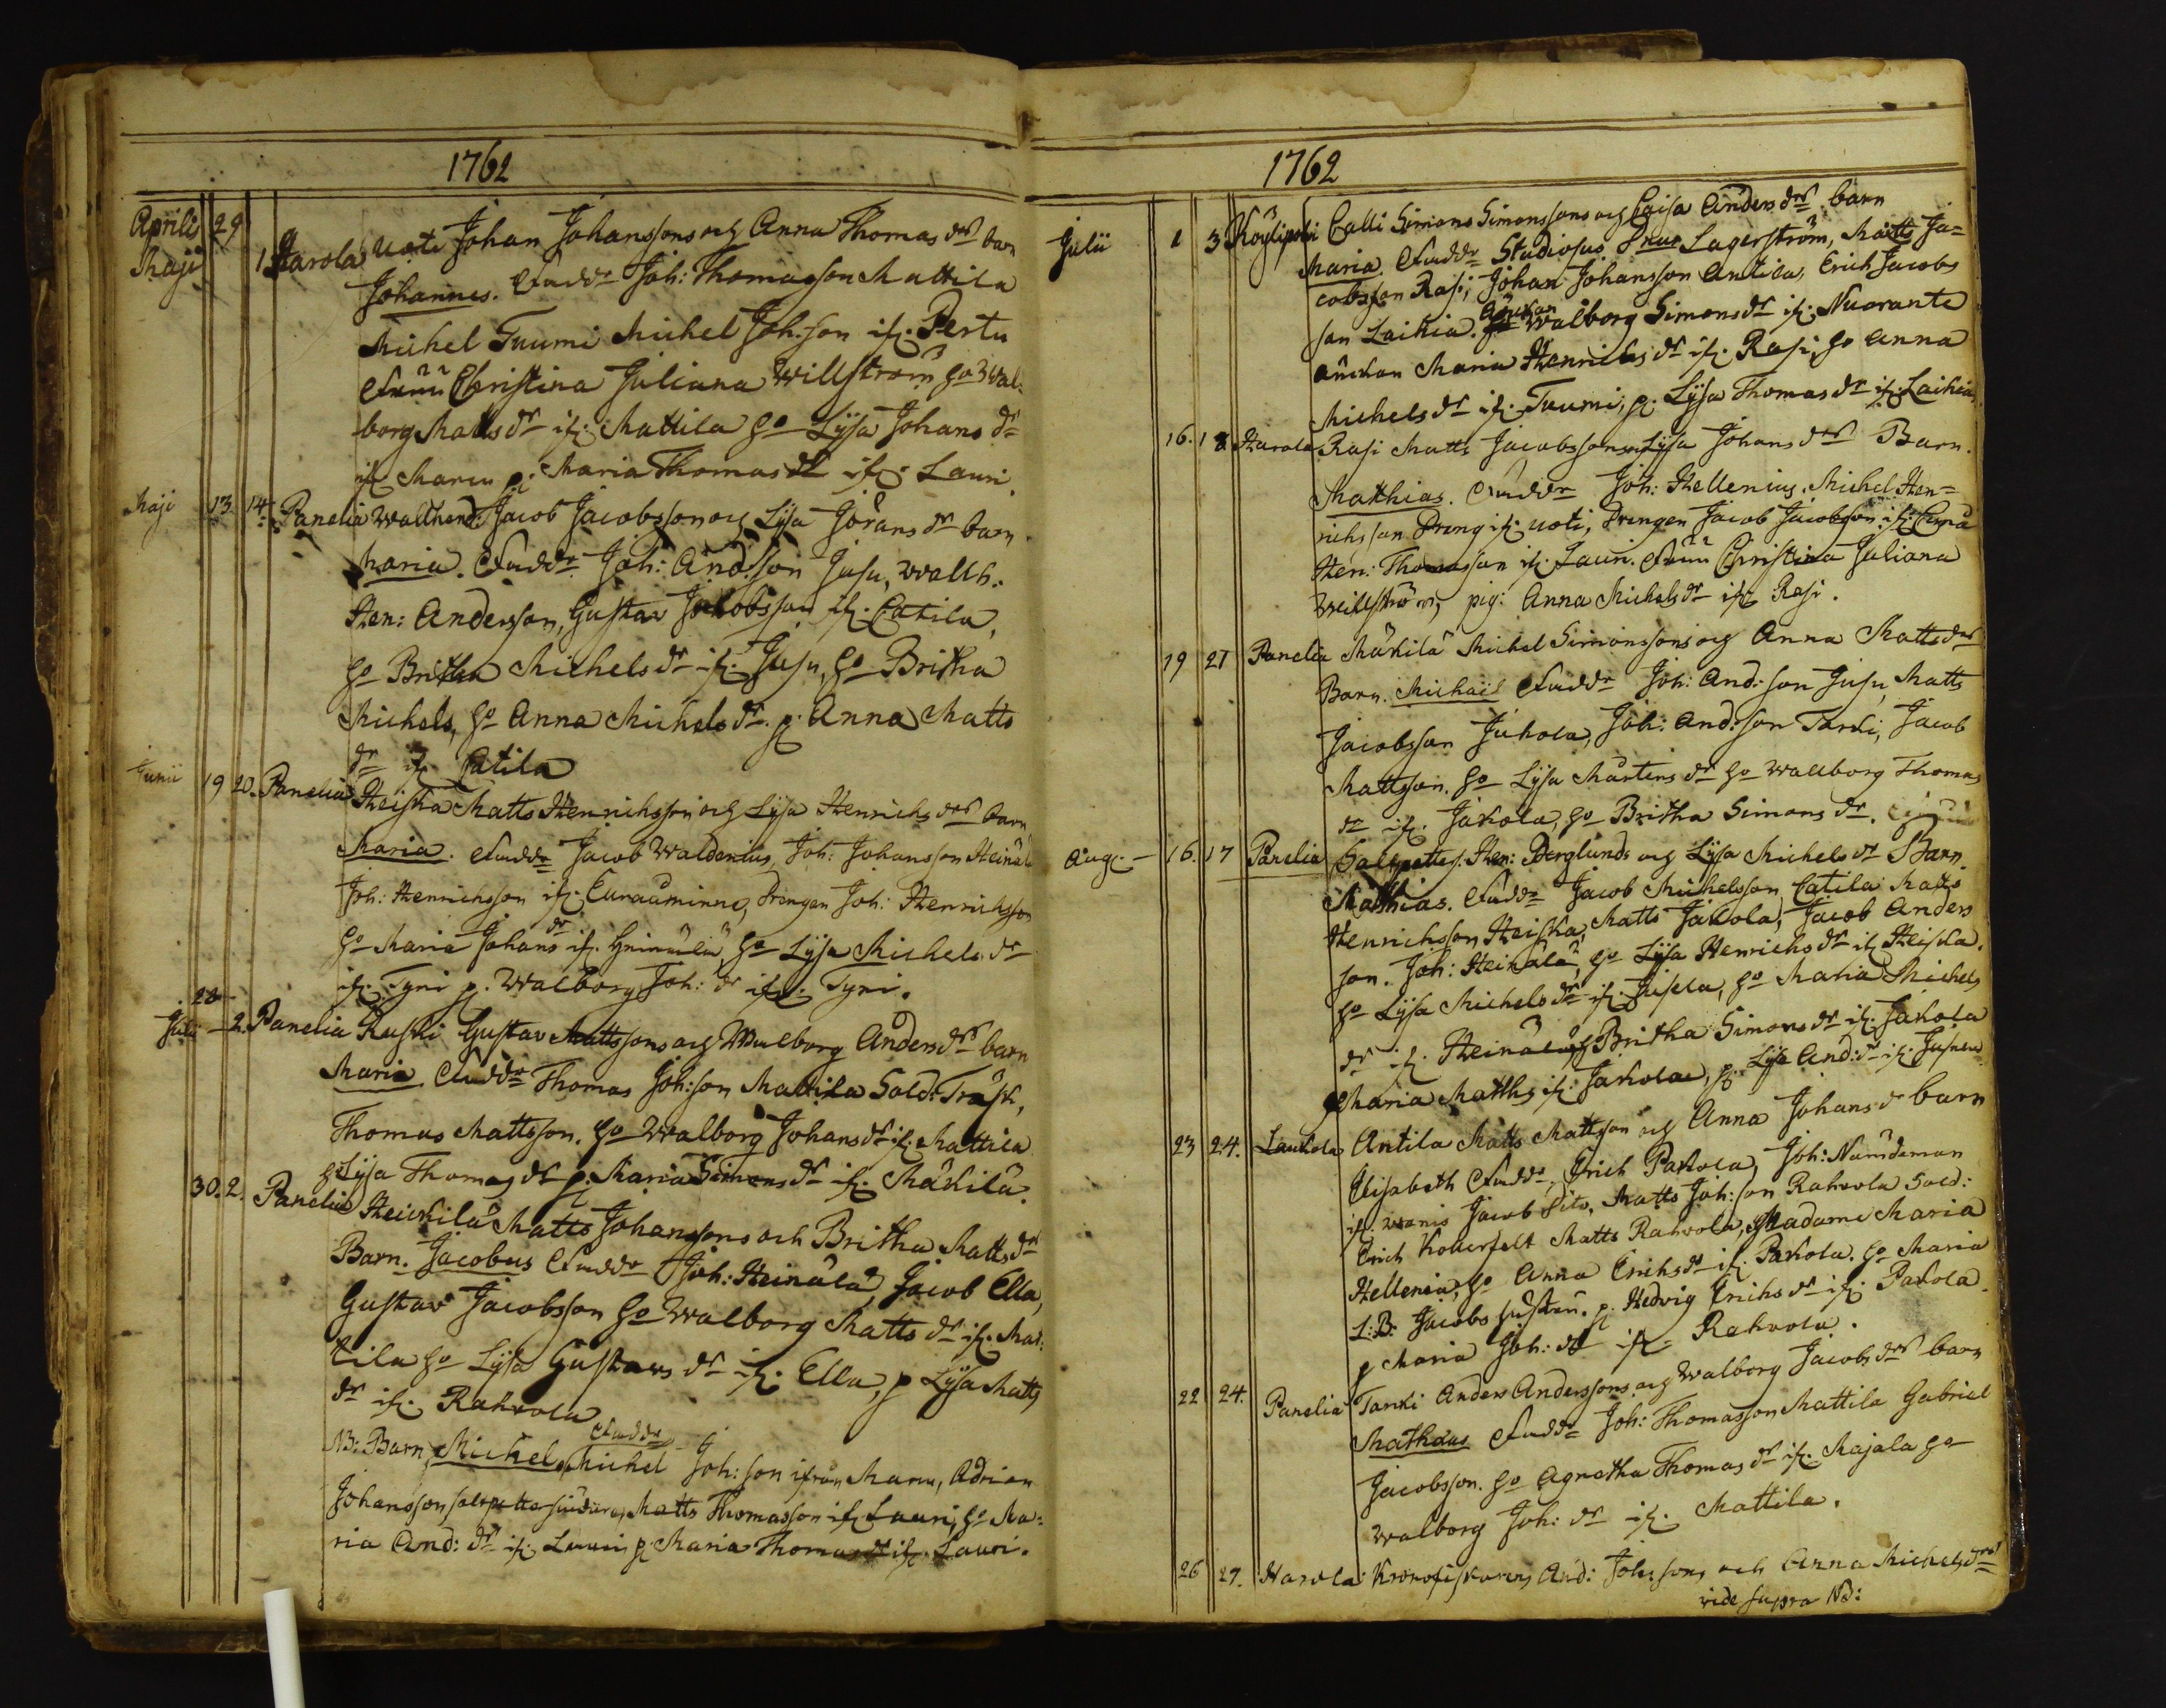 1762
Aprilis 29
Maji 1 Harola Uoti Johan Johanssons och Anna Thomas drs barn
Johannes. Faddr Joh: Thomasson Mattila
Michel Tuumi Michel Joh:son if: Pertu
Christina Juliana Willström ho Wal:
borg Matts dr if: Mattila ho Lysa Johans dr
if: Maru p: Maria Thomas dr if: Lauri.
Maji 13 14. Panelia Jacob Jacobsson och Lysa Jörans dr barn
Maria. Faddr Joh: And:son Jusu, Wallb.
Hen: Andersson, Gustav Jakobsson if: Catila,
ho Britha Michels dr if: Jusu, ho Britha
Michels, ho Anna Michels dr. p: Anna Matts
dr if: Catila
Junii 19 20. Panelia Heiska Matts Henrichsson och Lysa Henrichs drs barn
Maria. Faddr Jacob Waldenius, Joh: Johansson Heinälä
Joh: Henrichsson if: Euraåminne, Drengen Joh: Henrichsson
ho Maria Johans dr if: Heinälä, ho Lysa Michels dr
if: Tyni p. Walborg Joh: dr if: Tyni.
28
Julii 2. Panelia Ruski Gustav Mattssons och Walborg Anders drs barn
Maria Faddr Thomas Joh:son Mattila Sold: Träsk,
Thomas Mattsson. ho Walborg Johans dr if: Mattila
ho Lysa Thomas dr p. Maria Simons dr if: Mäkilä.
30. 2. Panelia Heickilä Matts Johanssons och Britha Matts drs
Barn. Jacobus Faddr Joh: Heinälä, Jacob Ella,
Gustav Jacobsson ho Walborg Matts dr if: Mat:
tila ho Lysa Gustavs dr if: Ella, p Lysa Matts
dr if: Rahvola
NB: Barn, Michel, Faddr Michel Joh: son ifrån Maru, Adrian
Johansson, salpettersiudare, Matts Thomasson if: Lauri, ho Ma:
ria And: dr if: Lauri p: Maria Thomas dr if: Lauri.
1762
Julii 1 3 Köylipolvi Calli Simons Simonssons och Caisa Anders drs barn
Maria. Faddr Studiosus Lagerström, Matts Ja=
cobsson Rasi, Johan Johansson Antila, Erich Jacobs
son Laihia. Änckan Walborg Simons dr if: Nuoranti
änckan Maria Henrichs dr if: Rasi, ho Anna
Michels dr if: Tuumi, p: Lysa Thomas dr if: Laihia.
16. 18 Harola Rasi Matts Jacobssons Lysa Johans drs Barn.
Matthias. Faddr Joh: Hellenius. Michel Hen=
richsson Dreng if: Uoti, Drengen Jacob Jacobsson if:
Hen: Thomasson if: Lauri. Christina Juliana
Weillström, pig: Anna Michels dr if: Rasi.
19 21 Panelia Mäkilä Michel Simonssons och Anna Matts drs
Barn. Michaël Faddr Joh: And: son Jusu, Matts
Jacobsson Jakola, Joh: And:son Tanki, Jacob
Mattsson. ho Lysa Mårtens dr ho Wallborg Thomas
dr if: Jakola, ho Britha Simons dr.
Aug: 16. 17 Panelia Salpetters: Hen: Berglunds och Lysa Michels dr Barn
Matthias. Faddr Jacob Michelsson Catila Matts
Henrichsson Heiska, Matts Jakola, Jacob Anders
son. Joh: Heinälä, ho Lysa Henrichs dr if: Heiska.
ho Lysa Michels dr if: ho Maria Michels
dr if: Heinälä ho Britha Simons dr if: Jakola
Maria Matths if: Jakola, p: Lysa And: dr if:
23 24. Laukola Antila Matts Mattsson och Anna Johans dr barn
Elisabeth Faddr, Erich Pakola, Joh: Nämdeman
if: Jacob Sito, Matts Joh:son Rahvola Sold:
Erich Matts Rahvola, Madame Maria
Hellenia, ho Anna Erichs dr if: Pakola. ho Maria
L:B: Jacobs hustru. p. Hedvig Erichs dr if: Pakola.
p Maria Joh: dr if: Rahvola.
22 24. Panelia Tanki Anders Anderssons och Walborg Jacobs drs barn
Mathæus Faddr Joh: Thomasson Mattila Gabriel
Jacobsson. ho Agnetha Thomas dr if: Majala ho
Walborg Joh: dr if: Mattila.
26 27. Harola And: Joh:sons och Anna Michels drs
vide supra NB: